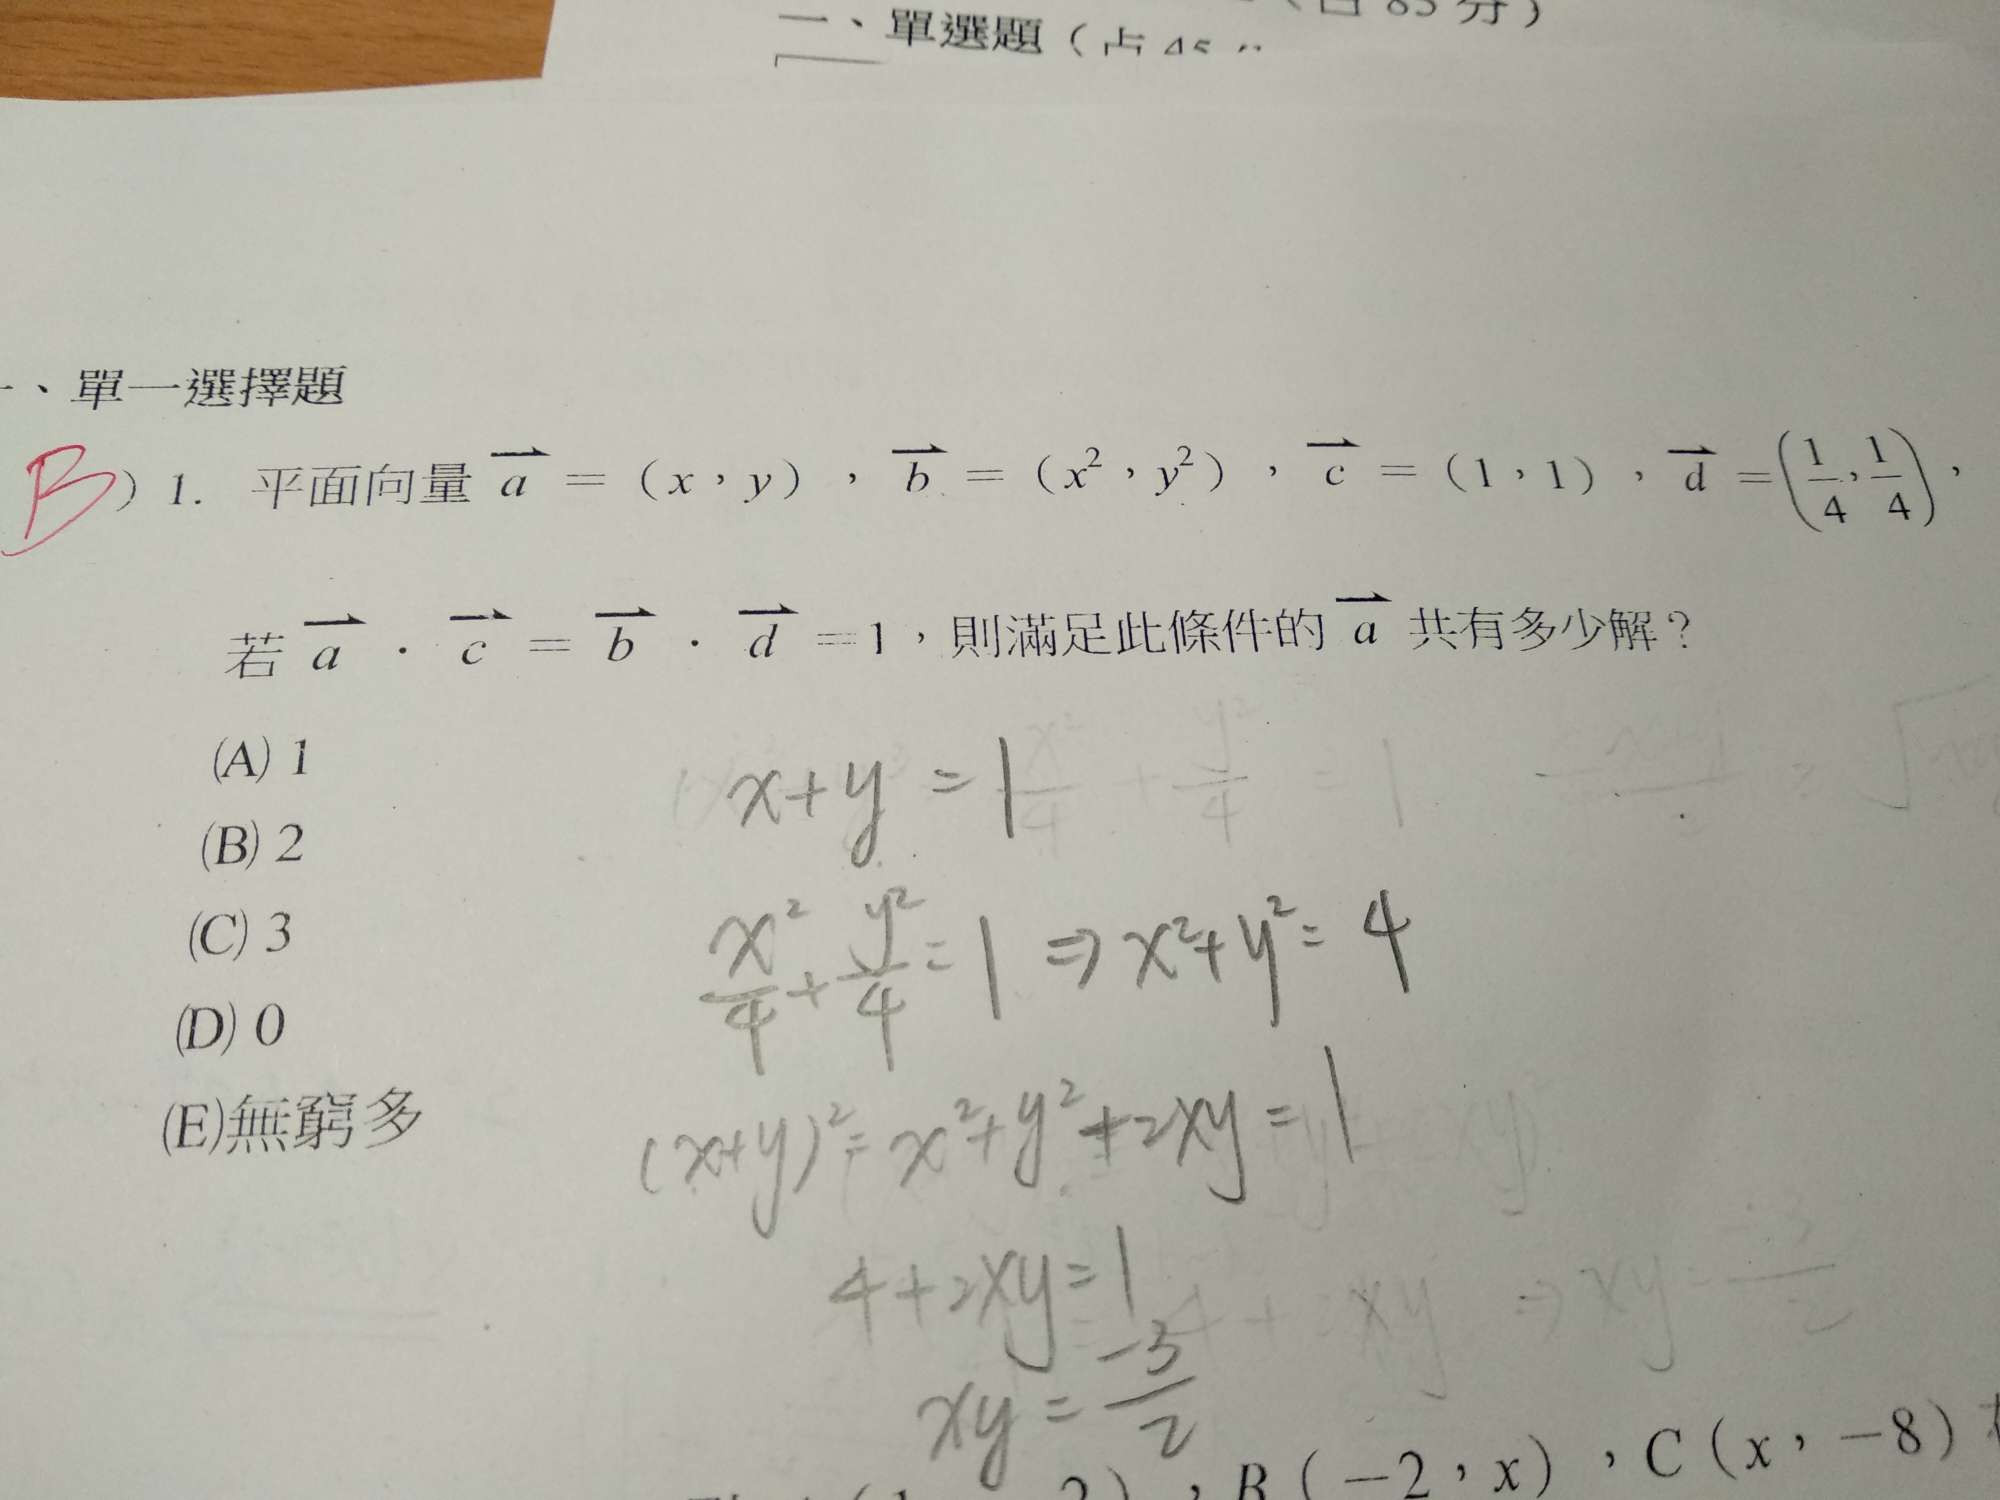 （占 85 分）
一、單選題（占 45
一、單一選擇題
B ）1. 平面向量 a⃗ =（x，y），b⃗ =（x²，y²），c⃗ =（1，1），d⃗ =(1/4, 1/4)，
若 a⃗ · c⃗ = b⃗ · d⃗ =1，則滿足此條件的 a⃗ 共有多少解？
(A) 1
(B) 2
(C) 3
(D) 0
(E)無窮多
x+y=1
x²/4+y²/4=1⇒x²+y²=4
(x+y)²=x²+y²+2xy=1
4+2xy=1
xy=-3/2
，B（−2，x），C（x，−8）